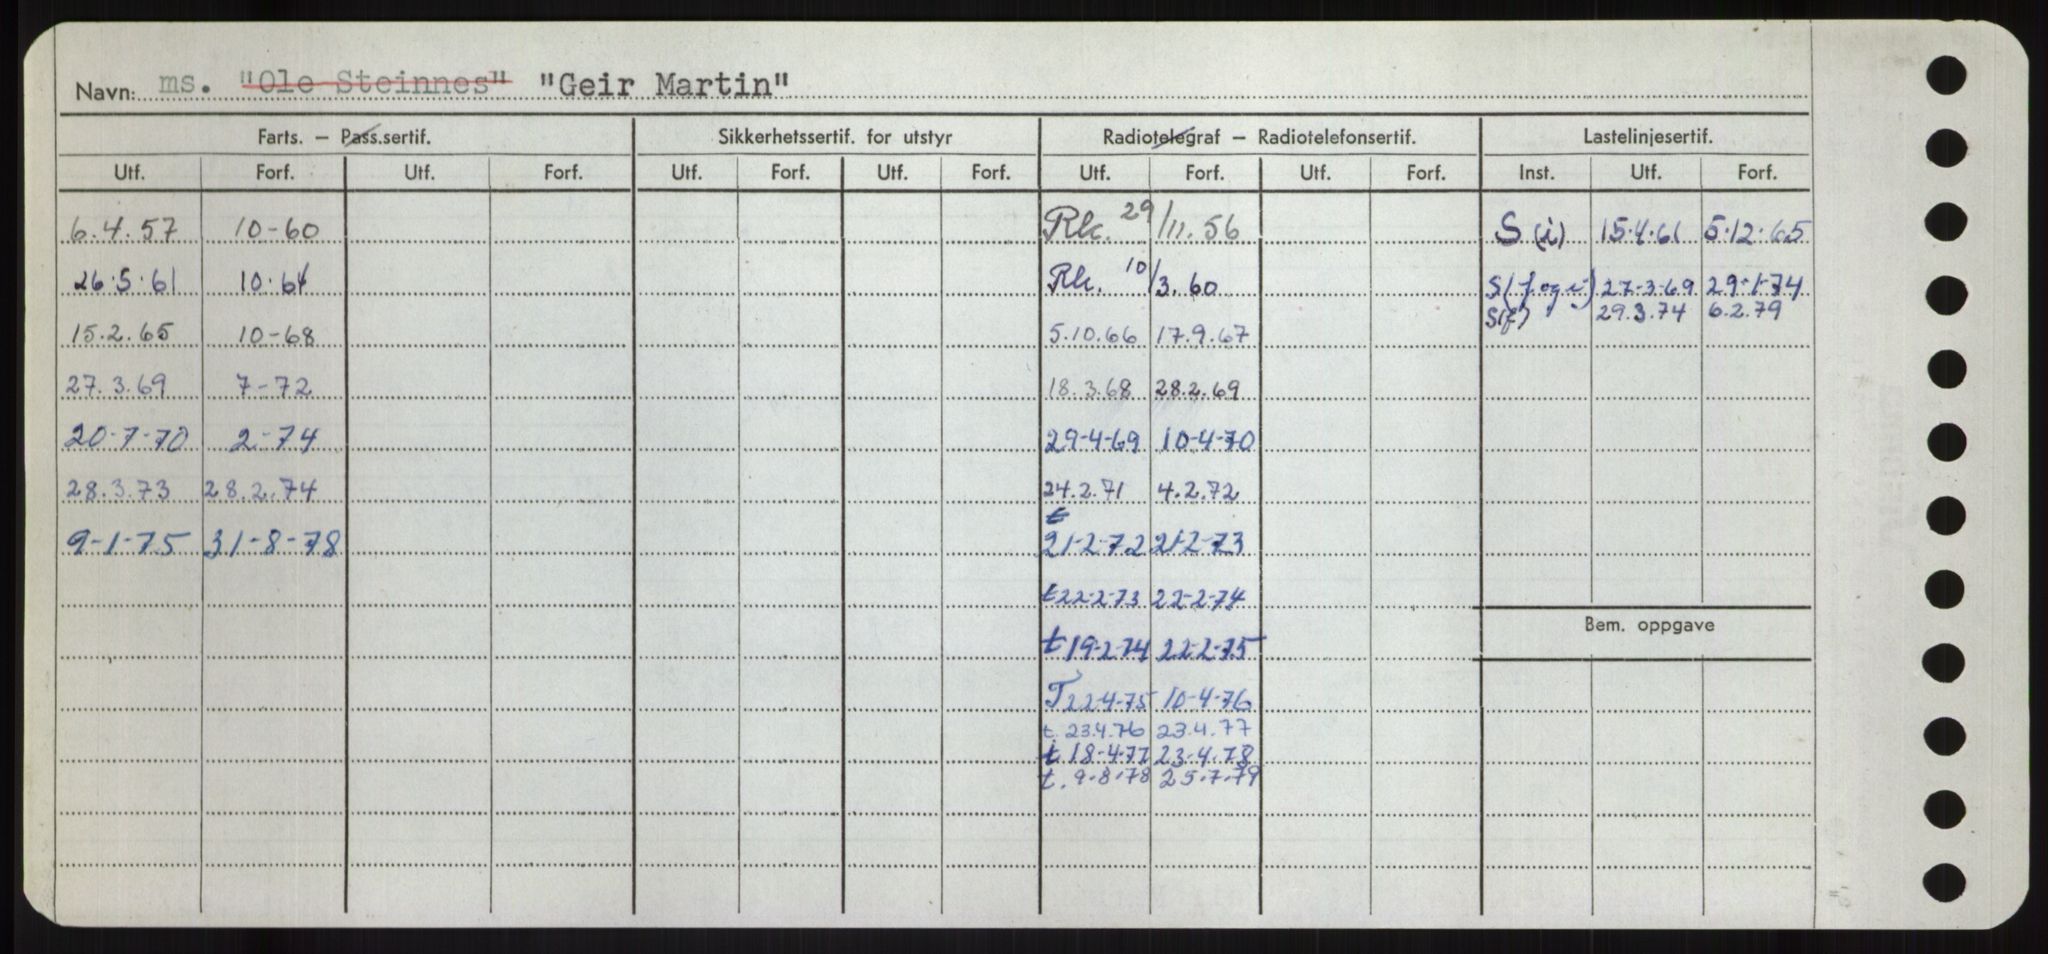 Navn: ms. "Ole Steinnes" "Geir Martin"
Farts. — Pass.sertif. Sikkerhetssertif. for utstyr Radiotelegraf — Radiotelefonsertif. Lastelinjesertif.
Utf. Forf. Utf. Forf. Utf. Forf. Utf. Forf. Utf. Forf. Utf. Forf. Inst. Utf. Forf.
6.4.57 10-60 Rk. 29/11.56 S (i) 15.4.61 5.12.65
26.5.61 10.64 Rk. 10/3.60 S(f og i) 27-3-69 29-1-74
S(f) 29.3.74 6.2.79
15.2.65 10-68 5.10.66 17.9.67
27.3.69 7-72 18.3.68 28.2.69
20-7-70 2-74 29-4-69 10-4-70
28.3.73 28.2.74 24.2.71 4.2.72
t
9-1-75 31-8-78 21-2-72 21-2-73
t 22-2-73 22-2-74
Bem. oppgave
t 19-2-74 22-2-75
T 22-4-75 10-4-76
t. 23.4.76 23.4.77
t 18-4-77 23-4-78
t. 9-8-78 25.7.79